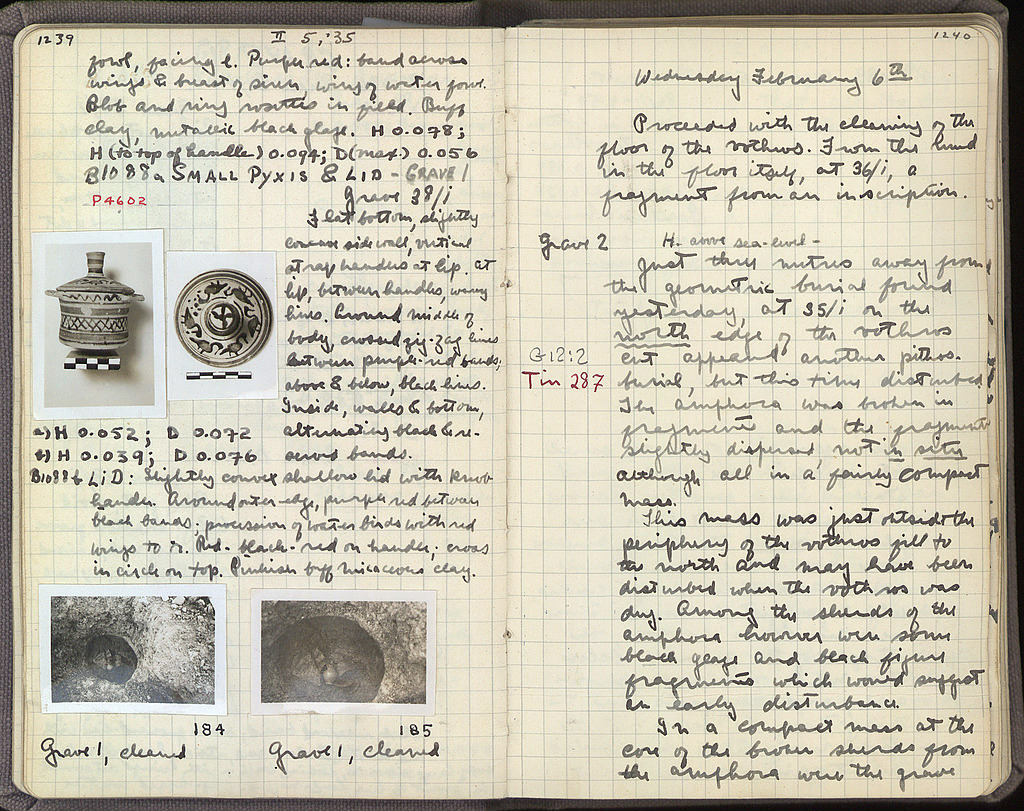 1239
II 5,:35
fowl, facing l. Purple red: band across
wings & breast of siren, wing of water fowl.
Blob and ring rosettes in field. Buff
clay, metallic black glaze. H 0.078;
H (to top of handle) 0.094; D (max.) 0.056
B1088a SMALL PYXIS & LID - GRAVE 1
P4602
Grave 38/i
Flat bottom, slightly
concave side wall, vertical
strap handles at lip. At
lip, between handles, wavy
lines. Around middle of
body, crossed zig-zag lines
between purple-red bands,
above & below, black lines.
Inside, walls & bottom,
alternating black & re-
served bands.
a) H 0.052; D 0.072
H 0.039; D 0.076
B1088b LID: Slightly convex shallow lid with knob
handle. Around outer edge, purple red between
black bands; procession of water birds with red
wings to r. Red-black-red on handle; cross
in circle on top. Pinkish buff micaceous clay.
184
185
Grave 1, cleaned
Grave 1, cleaned
1240
Wednesday February 6th
Proceeded with the cleaning of the
floor of the vothros. From the
in the floor itself, at 36/i, a
fragment from an inscription.
Grave 2
H. above sea-level -
Just three metres away from
the geometric burial found
yesterday, at 35/i on the
north edge of the vothros
cut appeared another pithos-
G12:2
Tin 287
burial, but this time disturbed
The amphora was broken in
fragments and the fragments
slightly dispersed, not in situ
although all in a fairly compact
mass.
This mass was just outside the
periphery of the vothros fill to
the north and may have been
disturbed when the vothros was
dug. Among the sherds of the
amphora however were some
black glaze and black figure
fragments which would suggest
an early disturbance.
In a compact mass at the
core of the broken sherds from
the amphora were the grave